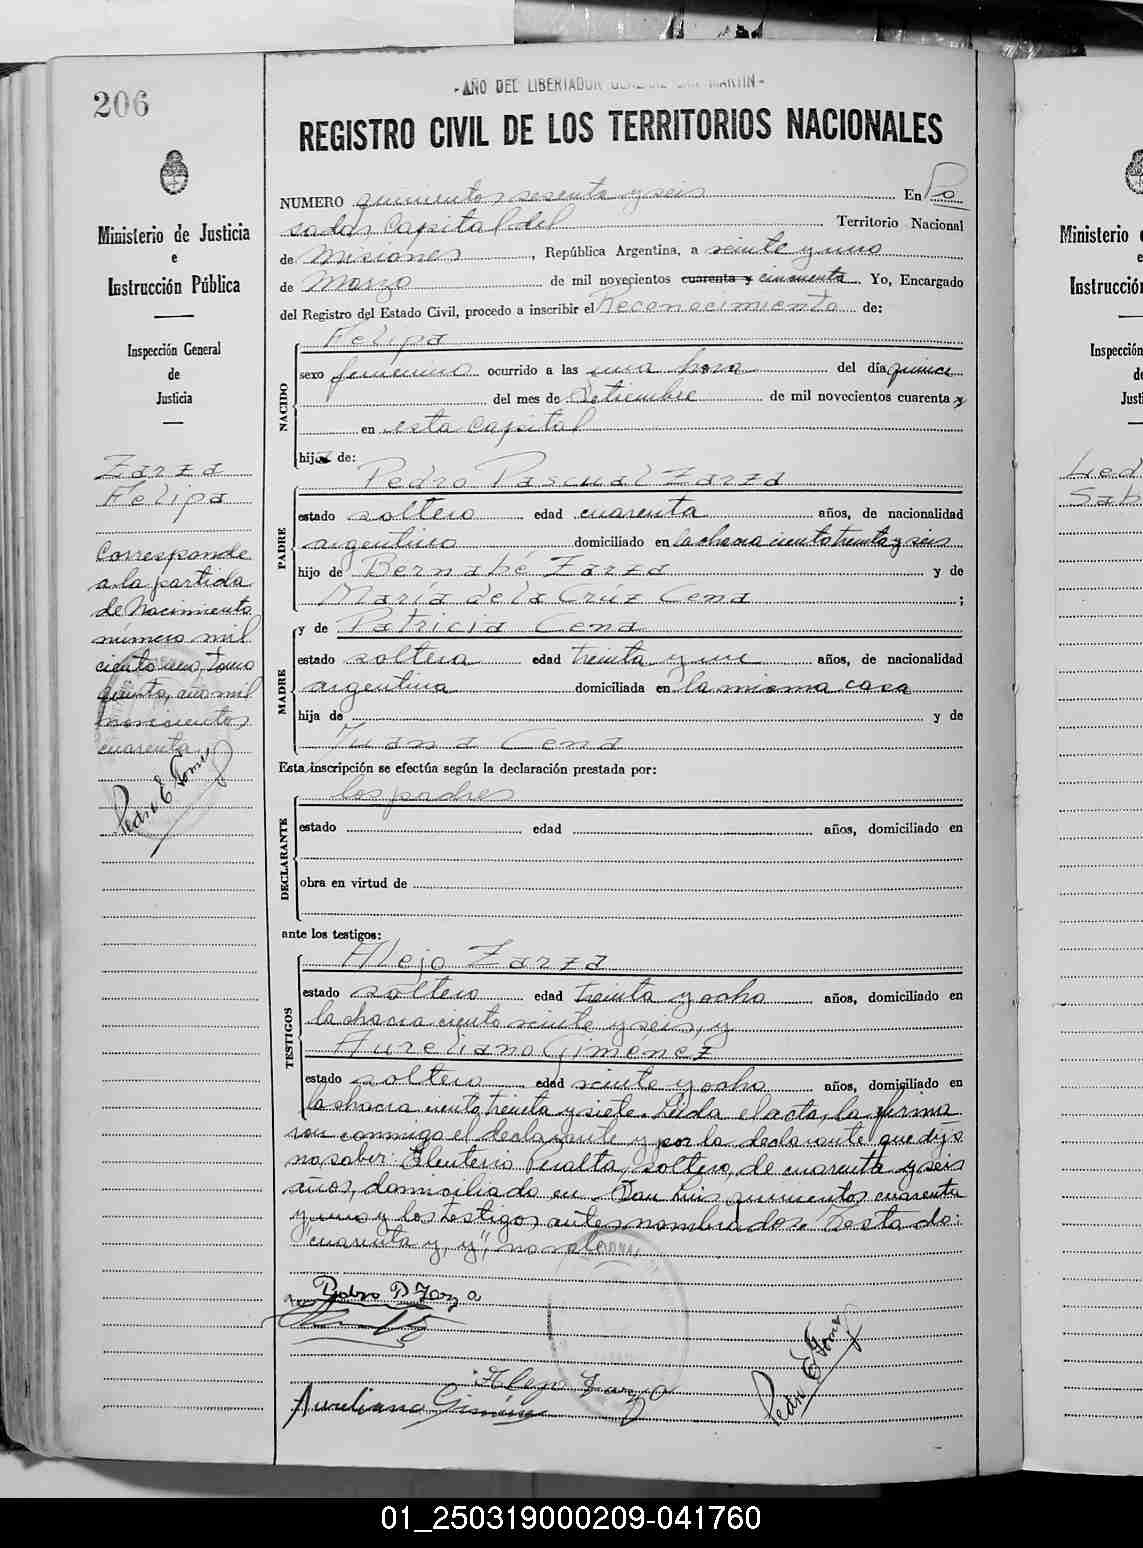 206
- AÑO DEL LIBERTADOR GENERAL SAN MARTIN -
REGISTRO CIVIL DE LOS TERRITORIOS NACIONALES
Ministerio de Justicia
e
Instrucción Pública
Inspección General
de
Justicia
Zarza
Felipa
Corresponde
a la partida
de Nacimiento
número mil
ciento uno, tomo
quinto, año mil
novecientos
cuarenta
Pedro E Gomez
NUMERO quinientos sesenta y seis En Po
sadas Capital del Territorio Nacional
de Misiones, República Argentina, a veinte y uno
de Marzo de mil novecientos cuarenta y cincuenta. Yo, Encargado
del Registro del Estado Civil, procedo a inscribir el Reconocimiento de:
NACIDO
Felipa
sexo femenino ocurrido a las una hora del día quince
del mes de Setiembre de mil novecientos cuarenta y
en esta Capital
hija de:
PADRE
Pedro Pascual Zarza
estado soltero edad cuarenta años, de nacionalidad
argentino domiciliado en la chacra ciento treinta y seis
hijo de Bernabé Zarza y de
María de la Cruz Cena ;
MADRE
y de Patricia Cena
estado soltera edad treinta y un años, de nacionalidad
argentina domiciliada en la misma casa
hija de y de
Juana Cena
Esta inscripción se efectúa según la declaración prestada por:
DECLARANTE
los padres
estado edad años, domiciliado en
obra en virtud de
ante los testigos:
TESTIGOS
Alejo Zarza
estado soltero edad treinta y ocho años, domiciliado en
la chacra ciento veinte y seis, y
Aureliano Giménez
estado soltero edad veinte y ocho años, domiciliado en
la chacra ciento treinta y siete. Leida el acta, la firma
ron conmigo el declarante y por la declarante que dijo
no saber: Eleuterio Peralta, soltero, de cuarenta y seis
años, domiciliado en San Luis quinientos cuarenta
y uno y los testigos antes nombrados. Testado:
"cuarenta y, y", no vale
Pedro P Zarza
Alejo Zarza
Aureliano Giménez
Pedro E Gomez
Ministerio
Instrucción
Inspección
Led
Sab
01_250319000209-041760